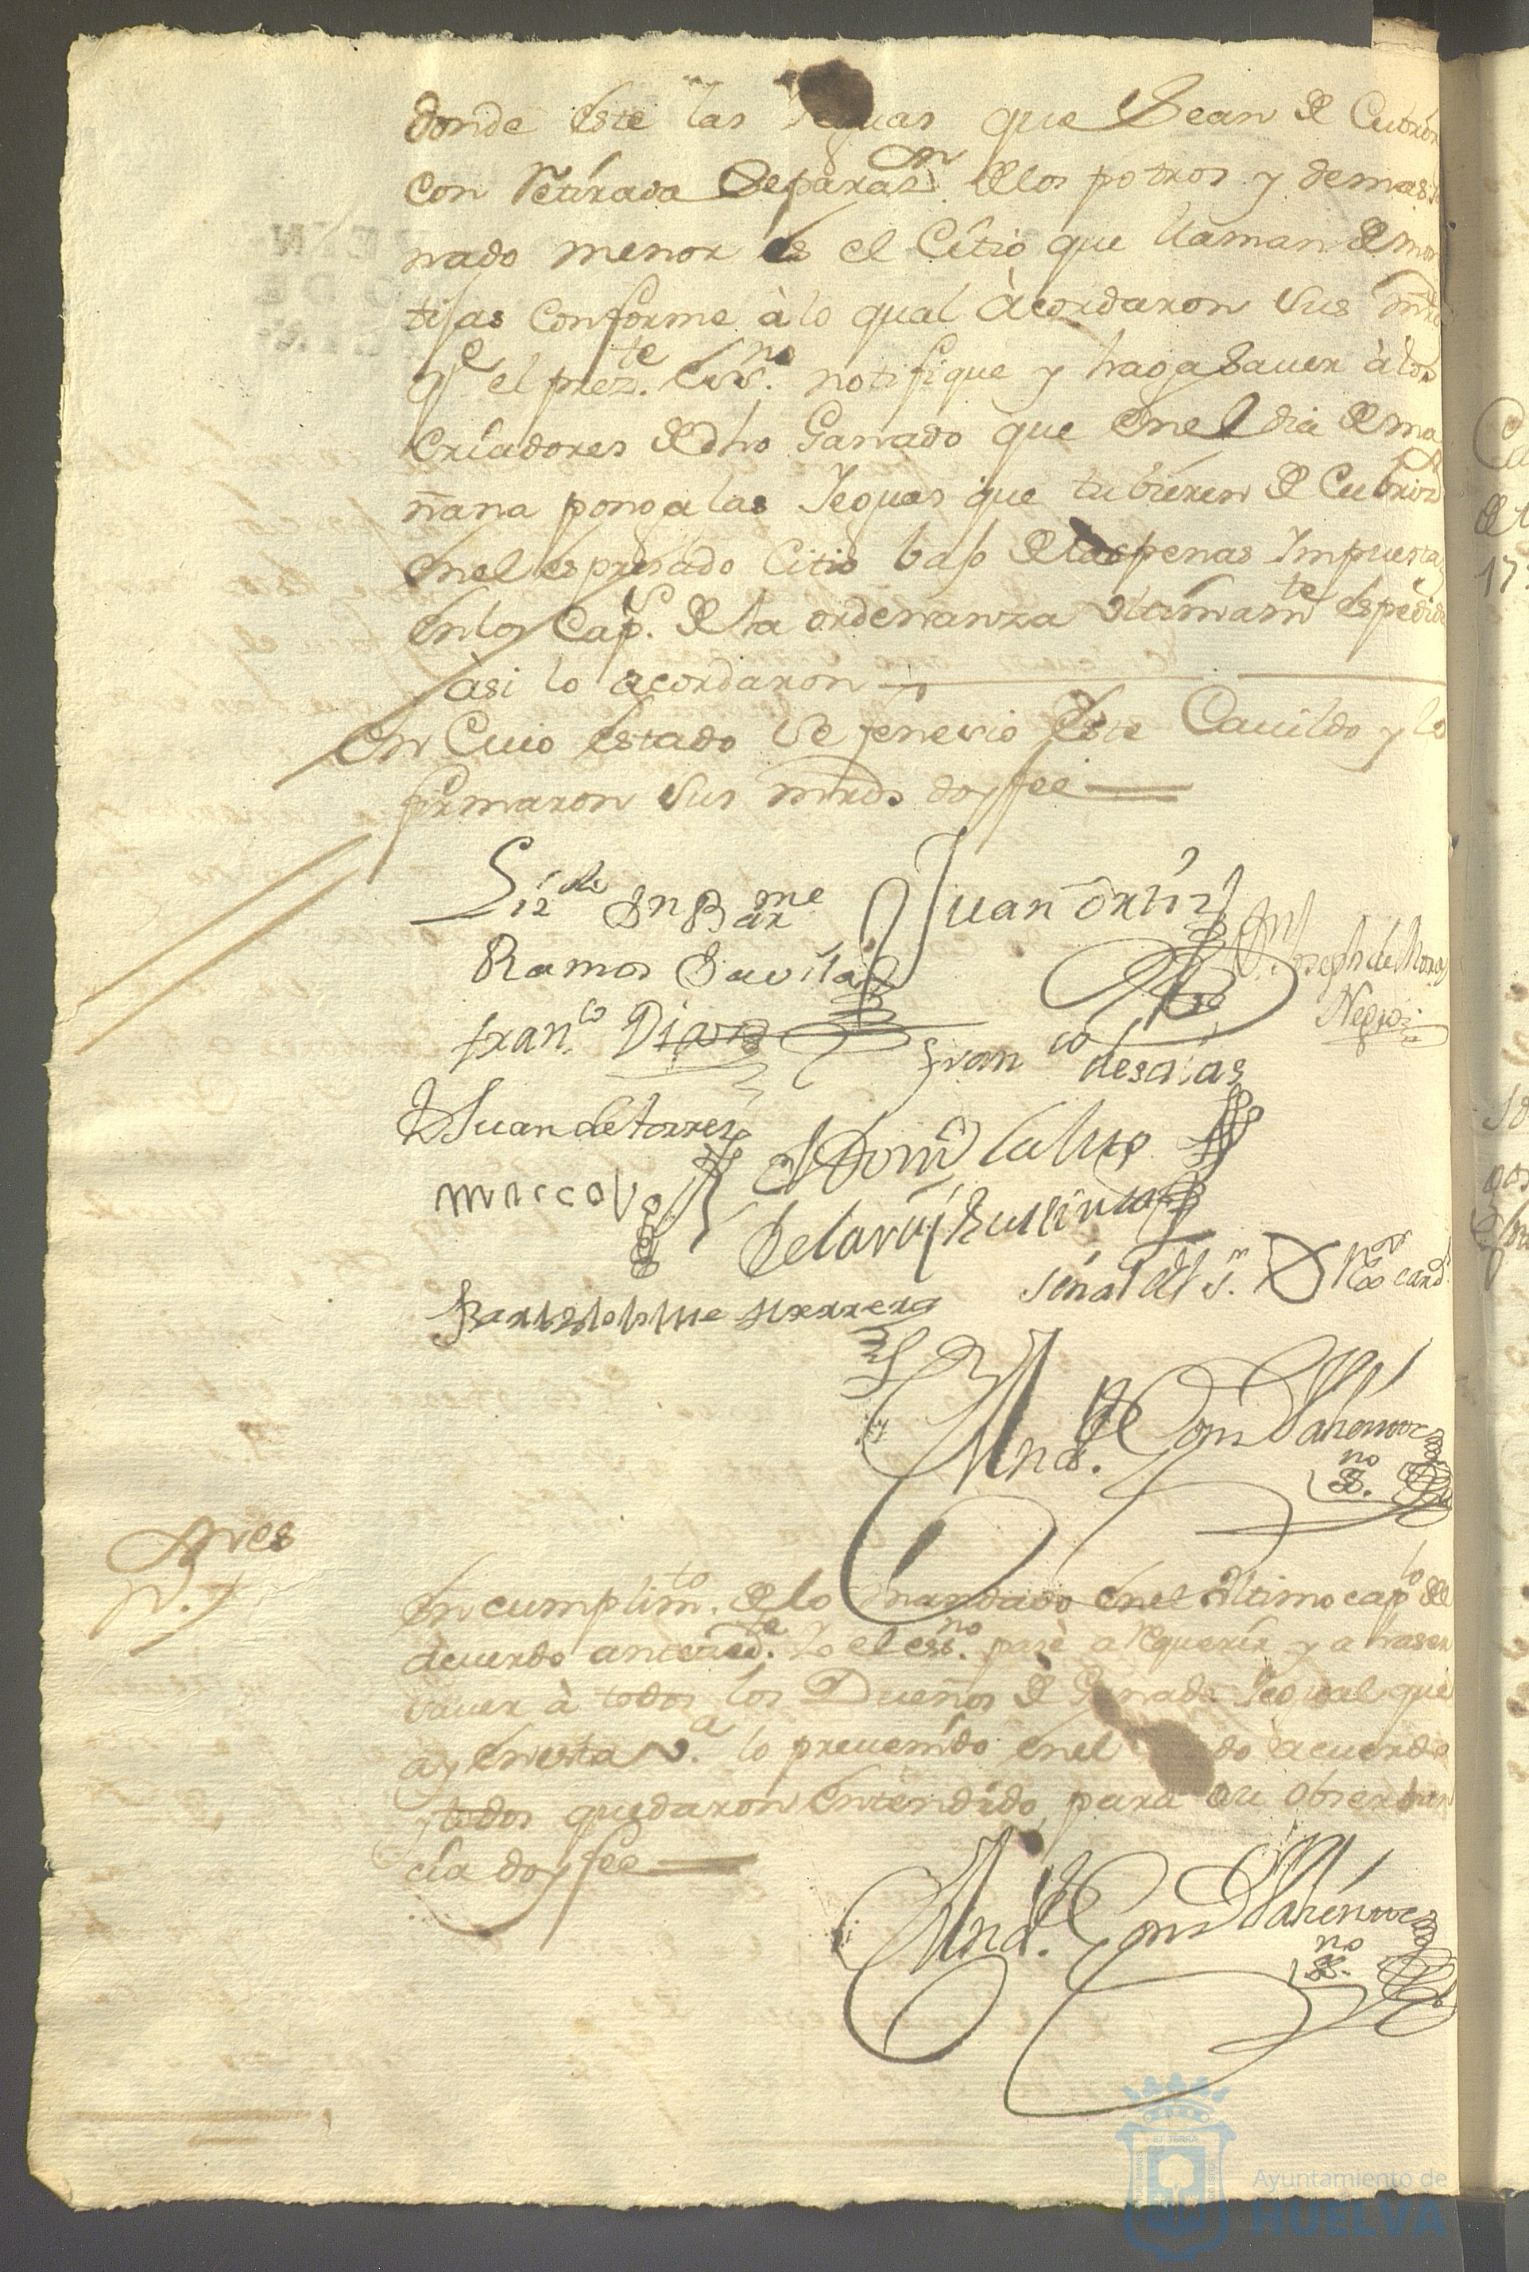 donde este las Yeguas que Sean de Cubrir
con Retirada Separaz.on de los potros y demas
nado menor es el Citio que llaman de mon
tijas conforme à lo qual àcordaron sus mrds
q.e el prez.te ess.no notifique y haga Sauer à los
Criadores de dho Ganado que en el dia de ma
ñana ponga las Yeguas que tubieren de Cubriz.on
en el espresado Citio bajo de las penas Impuestas
en los Cap.s de la ordenanza ultimam.te espedida
àsi lo acordaron
en Cuio estado se fenesio este Cauildo y lo
firmaron sus mrds doy fee
Liz.do Dn Bar.me
Ramos Davila
Juan Ortiz
Joseph de Mora
Negro
fran.co Diaz
fran co de salas
D Juan de torres
D Dom.o
Bartolome Herrera
señal del S.r Rexor
And.s Gom
ss.no
En cumplim.to de lo mandado en el ultimo cap.lo del
acuerdo anteced.te Yo el ess.no pasè a Requerir y a haser
sauer à todos los Dueños de Ganado Yegual que
ay en esta V.a lo preuenido en el do acuerdo
y todos quedaron entendido para su obserban
cia doy fee
And.s Gom
ss.no
Ayuntamiento de
HUELVA